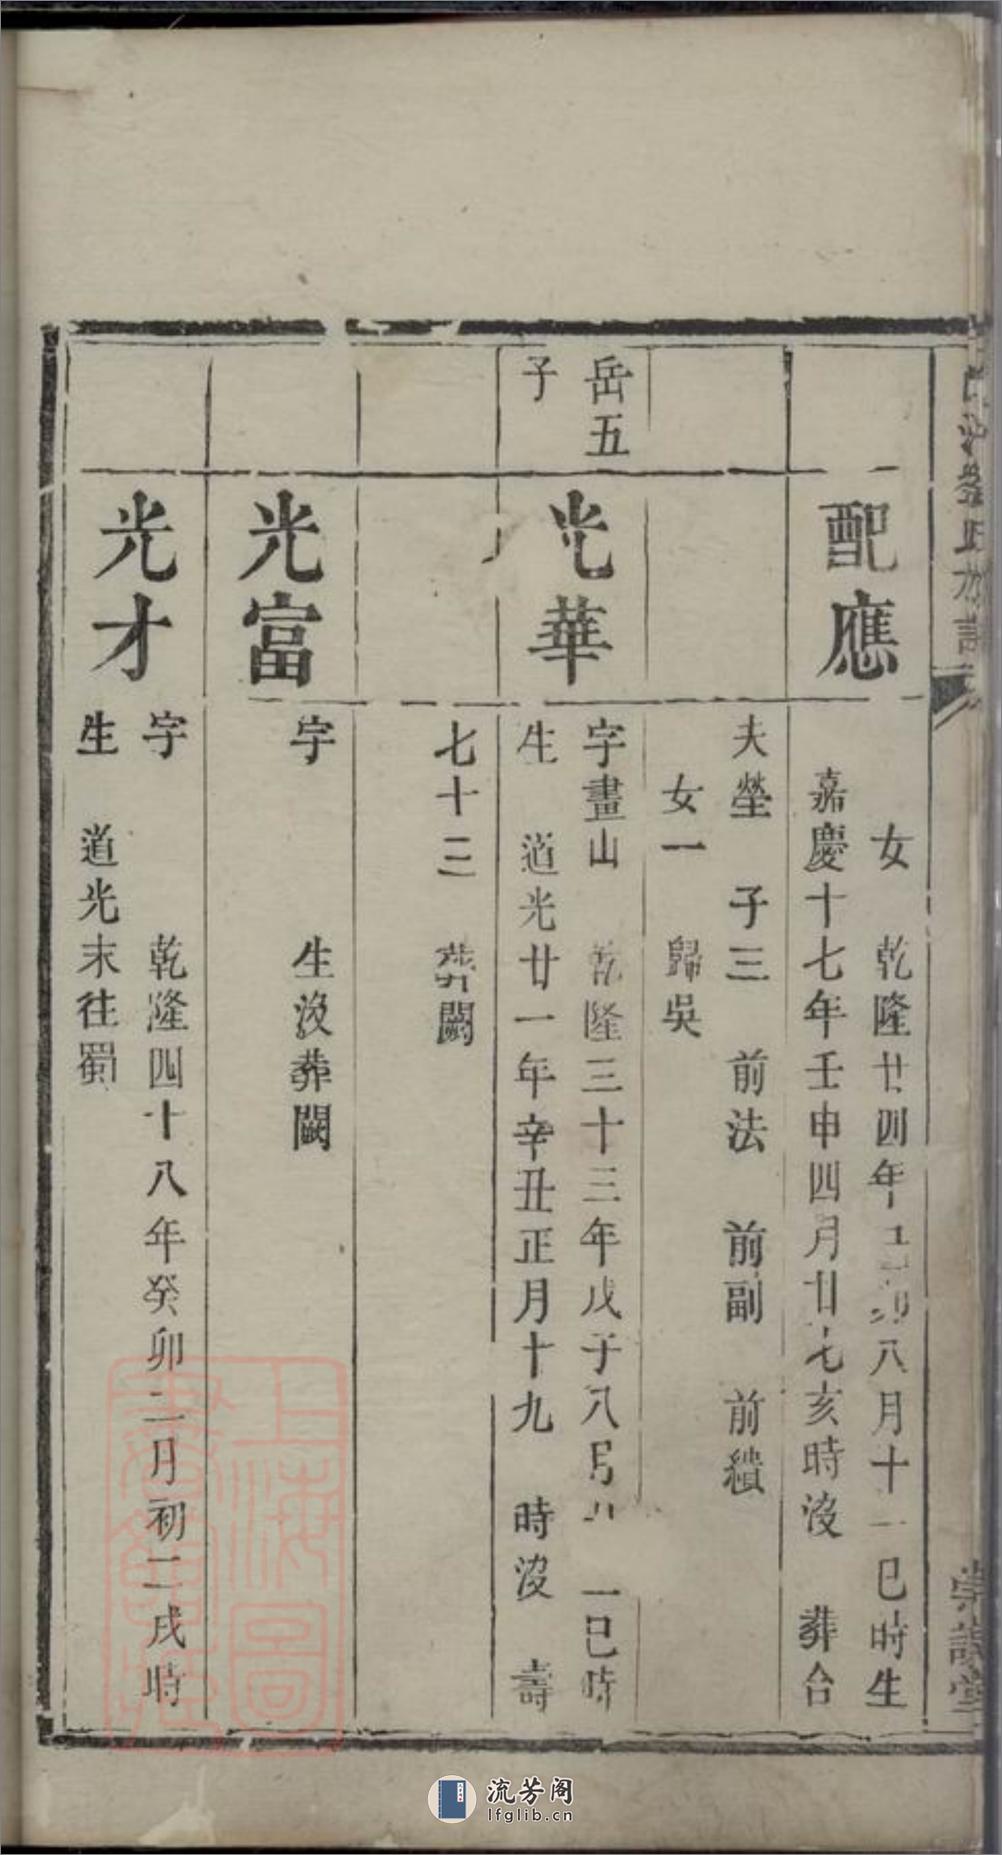 配應
女　乾隆廿四年己卯八月十一巳時生
嘉慶十七年壬申四月廿七亥時沒　葬合
夫塋　子三　前法　前副　前績
女一　歸吳
岳五
子
光華
字畫山　乾隆三十三年戊子八月　一巳時
生　道光廿一年辛丑正月十九　時沒　壽
七十三　葬闕
光富
字　生沒葬闕
光才
字　乾隆四十八年癸卯二月初二戌時
生　道光末往蜀
上海圖
書館藏
流芳阁
lfglib.cn